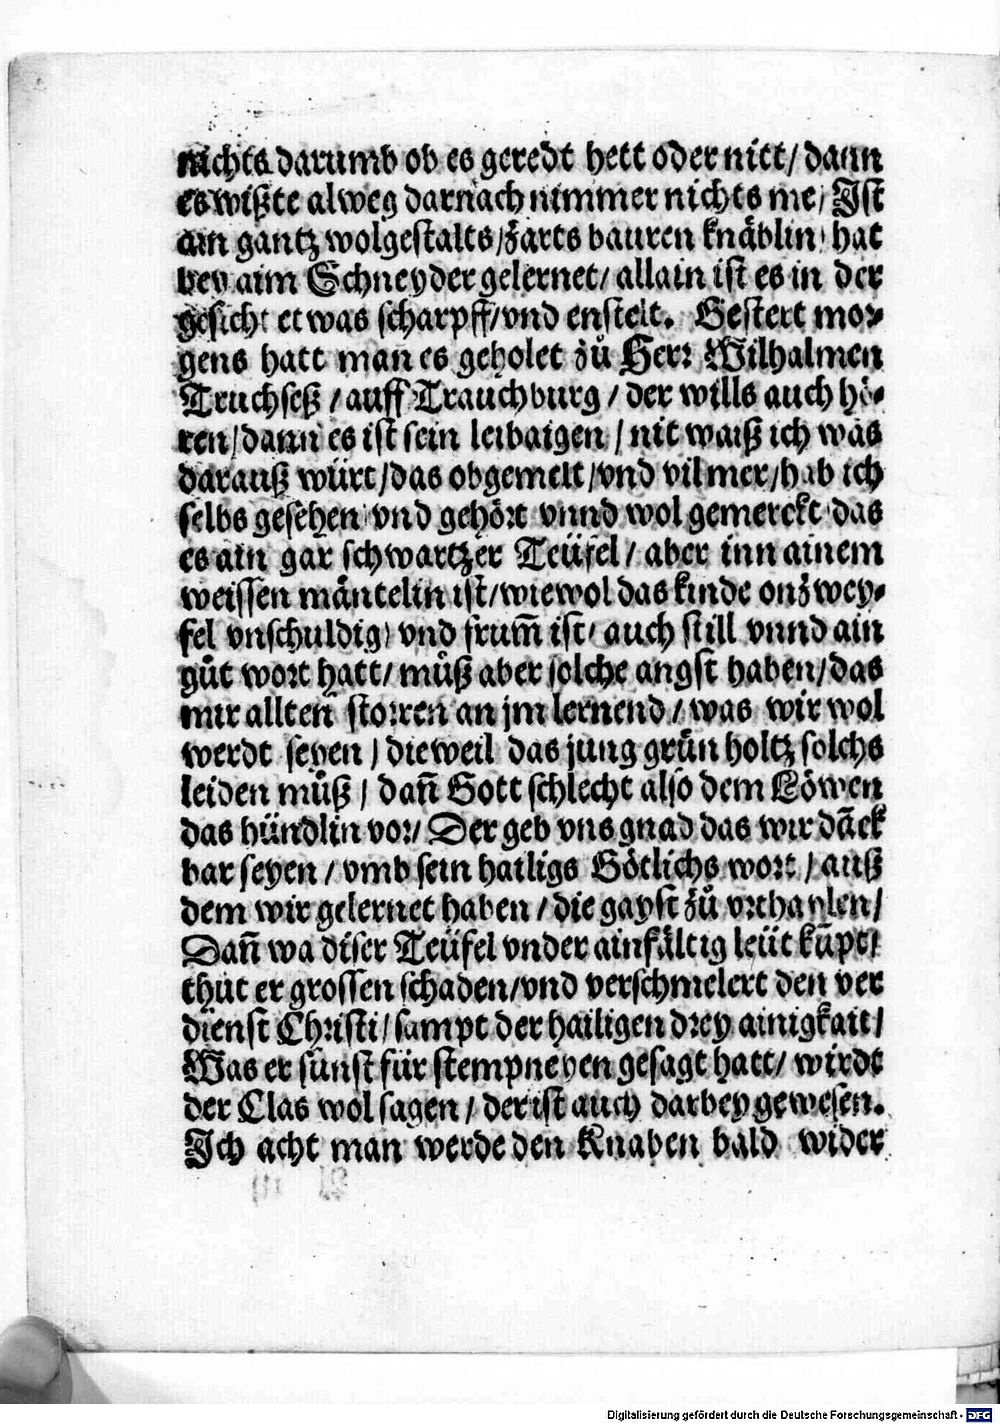 nichts darumb ob es geredt hett oder nitt/ dann
es wißte alweg darnach nimmer nichts me/ Ist
ain gantz wolgestalts/ zarts bauren knäblin/ hat
bey aim Schneyder gelernet/ allain ist es in der
gesicht etwas scharpff/ vnd enstelt. Gestert mor⸗
gens hatt man es geholet zů Herr Wilhalmen
Truchseß / auff Trauchburg / der wills auch hö⸗
ren/ dann es ist sein leibaigen / nit waiß ich was
darauß würt/ das obgemelt/ vnd vil mer/ hab ich
selbs gesehen vnd gehört vnnd wol gemerckt das
es ain gar schwartzer Teüfel/ aber inn ainem
weissen mäntelin ist/ wiewol das kinde onzwey⸗
fel vnschuldig/ vnd frum̃ ist/ auch still vnnd ain
gůt wort hatt/ můß aber solche angst haben/ das
mir allten storren an jm lernend / was wir wol
werdt seyen / dieweil das jung grün holtz solchs
leiden můß / dañ Gott schlecht also dem Löwen
das hündlin vor/ Der geb vns gnad das wir dãck
bar seyen / vmb sein hailigs Götlichs wort / auß
dem wir gelernet haben / die gayst zů vrthaylen/
Dañ wa diser Teüfel vnder ainfältig leüt kũpt/
thůt er grossen schaden/ vnd verschmelert den ver
dienst Christi/ sampt der hailigen drey ainigkait/
Was er sunst für stempneyen gesagt hatt/ wirdt
der Clas wol sagen / der ist auch darbey gewesen.
Ich acht man werde den Knaben bald wider
Digitalisierung gefördert durch die Deutsche Forschungsgemeinschaft - DFG